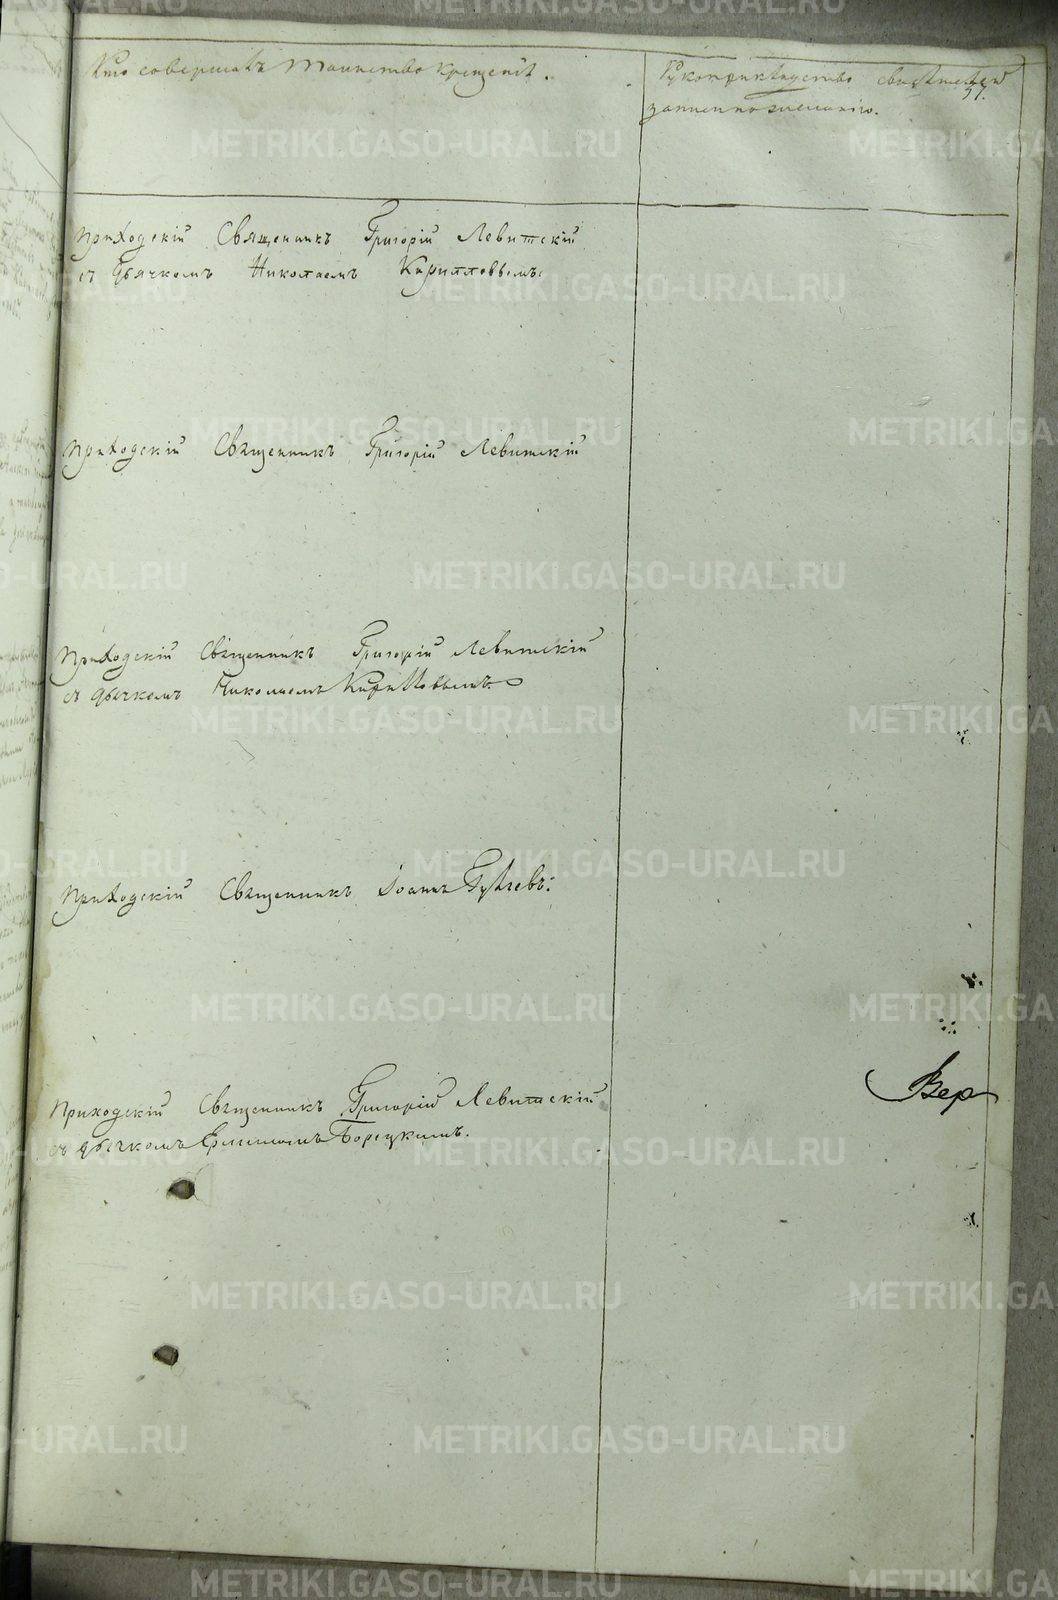 Кто совершалъ таинство крещенія.
Рукоприкладство свидѣтелей
записи по желанію.
37.
Приходскій Священникъ Григорій Левитскій
съ Дьячкомъ Николаемъ Кирилловымъ.
Приходскій Священникъ Григорій Левитскій
Приходскій Священникъ Григорій Левитскій
съ дьячкомъ Николаемъ Кирилловымъ.
Приходскій Священникъ Іоаннъ
Приходскій Священникъ Григорій Левитскій
съ дьячкомъ Борецкимъ.
Вер
METRIKI.GASO-URAL.RU